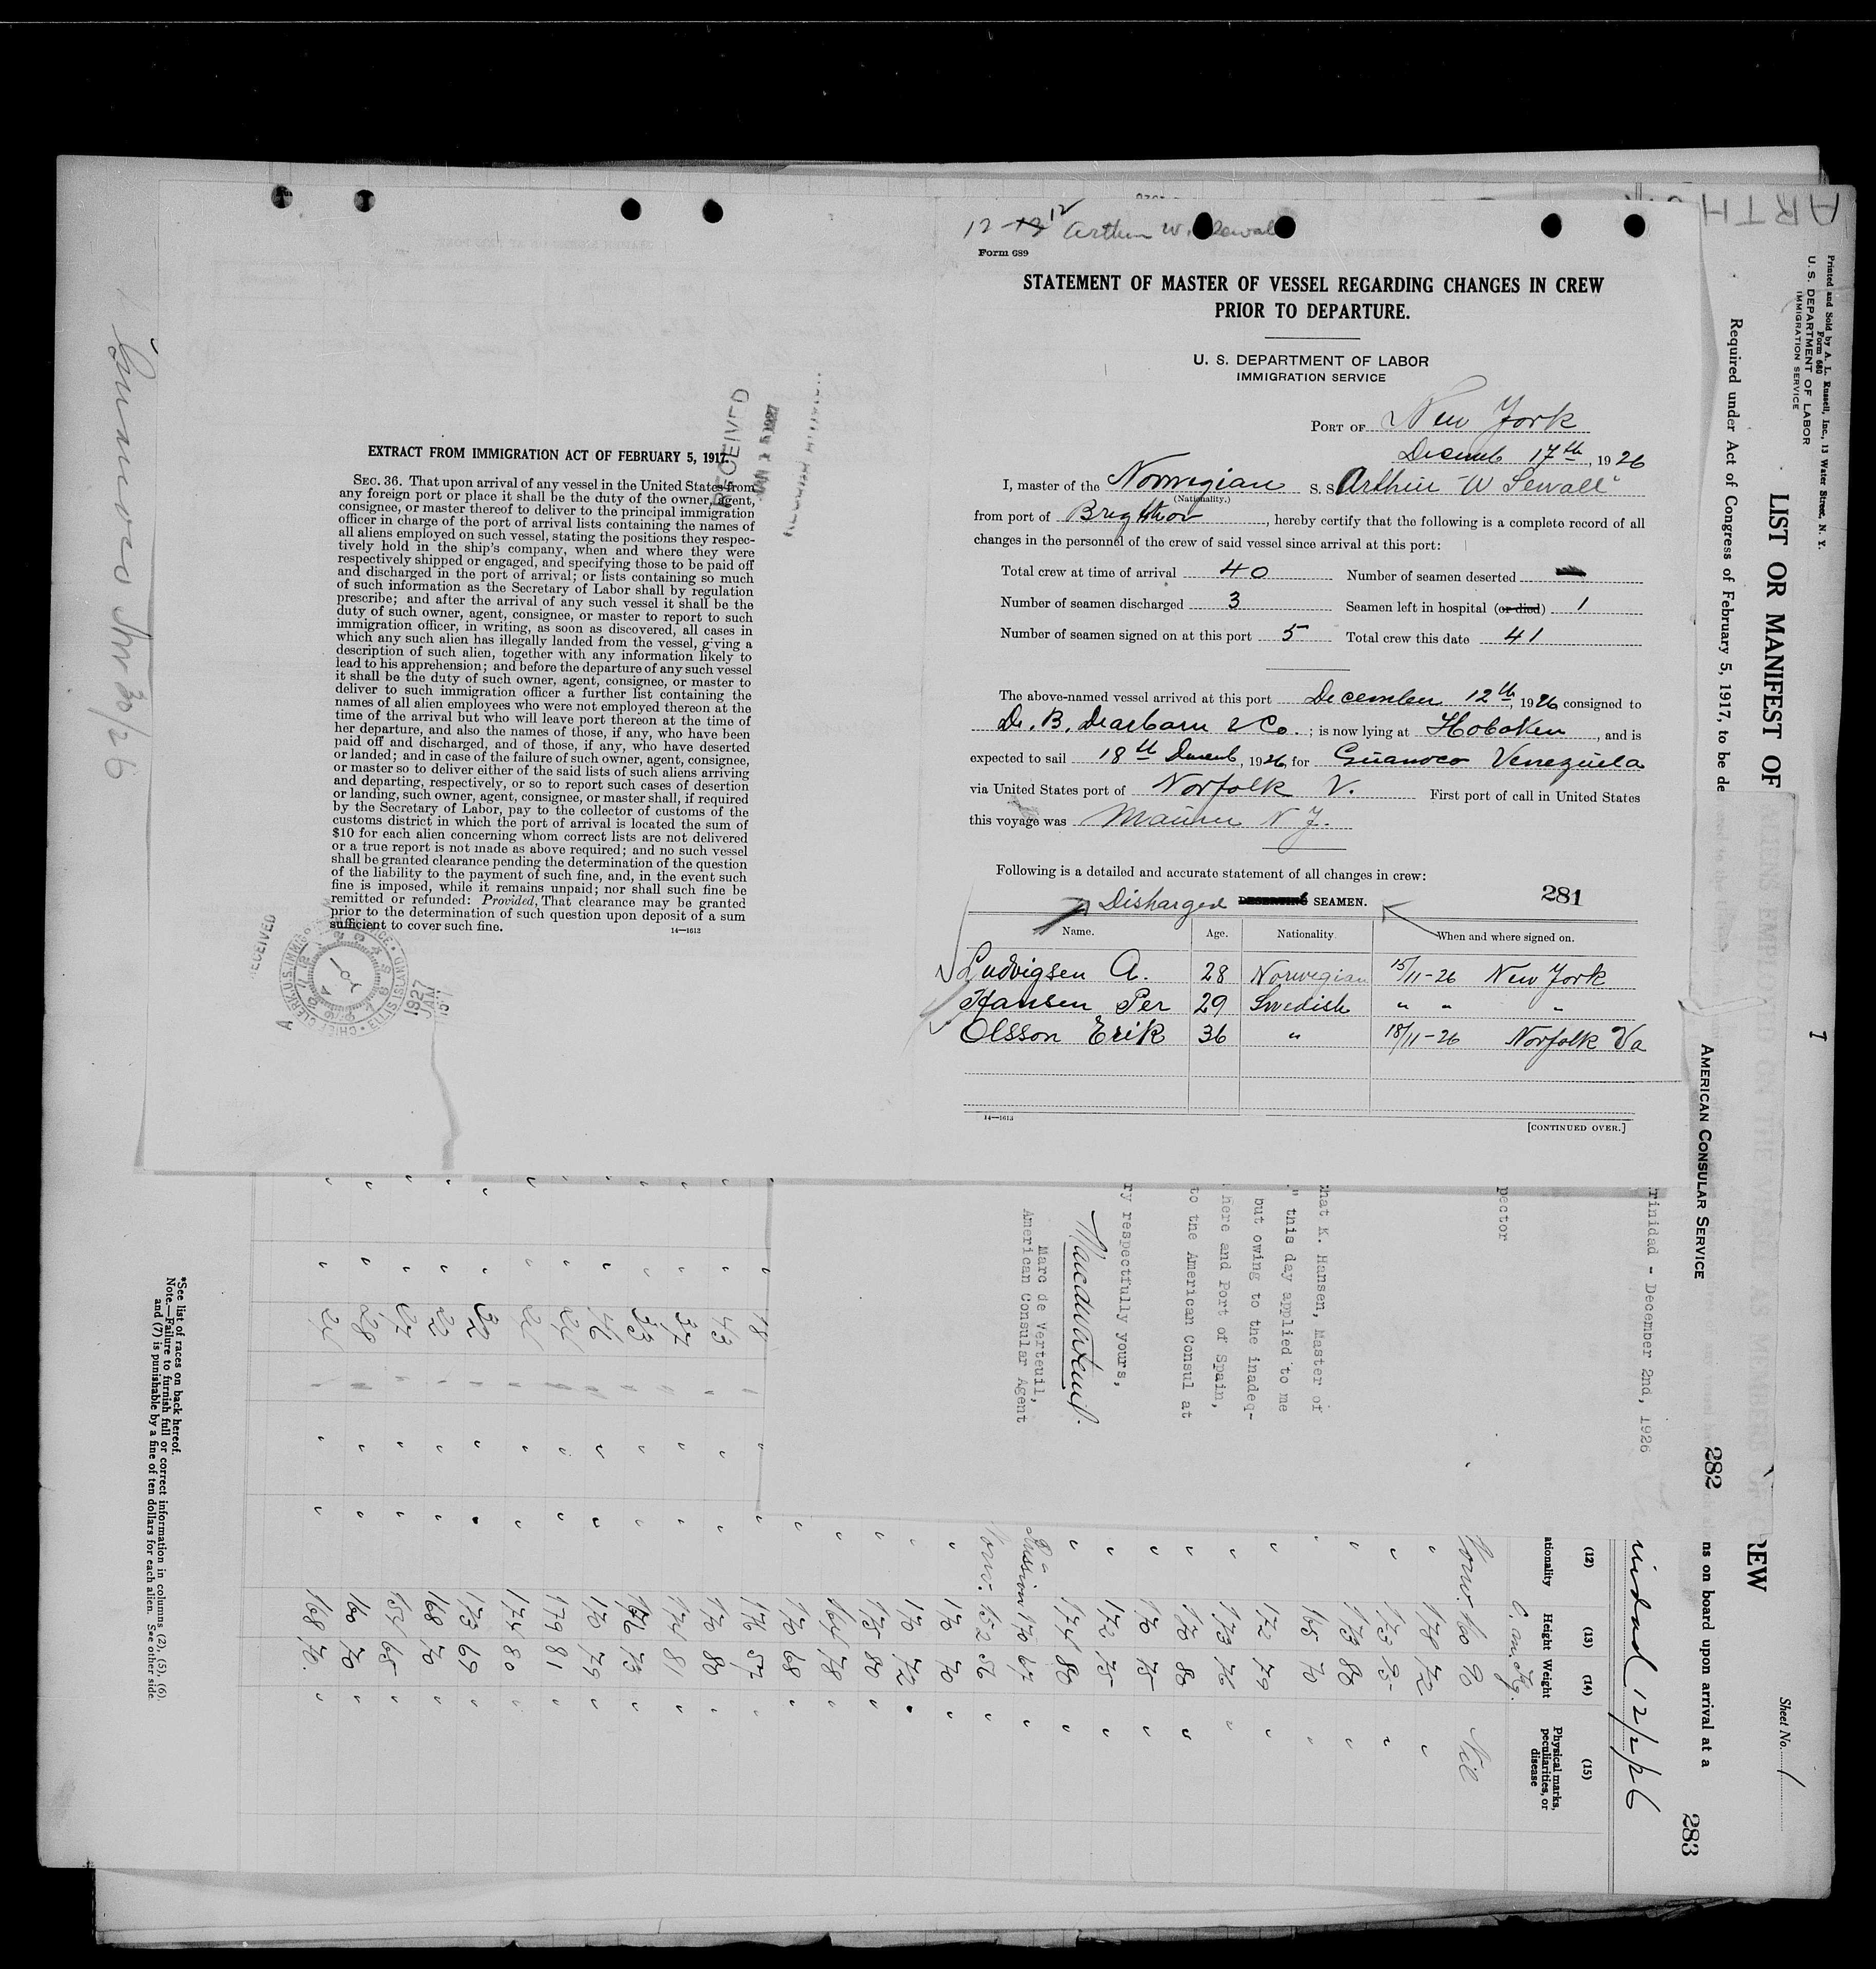 12-12 Arthur W. Sewall
Form 689
STATEMENT OF MASTER OF VESSEL REGARDING CHANGES IN CREW
PRIOR TO DEPARTURE.
U. S. DEPARTMENT OF LABOR
IMMIGRATION SERVICE
PORT OF New York
Decemb 17th, 1926
I, master of the Norwegian S. S. Arthur W Sewall"
(Nationality.)
from port of Brighton, hereby certify that the following is a complete record of all
changes in the personnel of the crew of said vessel since arrival at this port:
Total crew at time of arrival 40 Number of seamen deserted
Number of seamen discharged 3 Seamen left in hospital (or died) 1
Number of seamen signed on at this port 5 Total crew this date 41
The above-named vessel arrived at this port December 12th, 1926 consigned to
D. B. Dearborn & Co.; is now lying at Hoboken, and is
expected to sail 18th Decemb, 1926, for Guanoco Venezuela
via United States port of Norfolk V. First port of call in United States
this voyage was Maurer N J.
Following is a detailed and accurate statement of all changes in crew:
281
Disharged DESERTING SEAMEN.
Name. Age. Nationality. When and where signed on.
Ludvigsen A. 28 Norwegian 15/11-26 New York
Hansen Per 29 Swedish " " "
Olsson Erik 36 " 18/11-26 Norfolk Va
14—1613
[CONTINUED OVER.]
EXTRACT FROM IMMIGRATION ACT OF FEBRUARY 5, 1917.
SEC. 36. That upon arrival of any vessel in the United States from
any foreign port or place it shall be the duty of the owner, agent,
consignee, or master thereof to deliver to the principal immigration
officer in charge of the port of arrival lists containing the names of
all aliens employed on such vessel, stating the positions they respec-
tively hold in the ship's company, when and where they were
respectively shipped or engaged, and specifying those to be paid off
and discharged in the port of arrival; or lists containing so much
of such information as the Secretary of Labor shall by regulation
prescribe; and after the arrival of any such vessel it shall be the
duty of such owner, agent, consignee, or master to report to such
immigration officer, in writing, as soon as discovered, all cases in
which any such alien has illegally landed from the vessel, giving a
description of such alien, together with any information likely to
lead to his apprehension; and before the departure of any such vessel
it shall be the duty of such owner, agent, consignee, or master to
deliver to such immigration officer a further list containing the
names of all alien employees who were not employed thereon at the
time of the arrival but who will leave port thereon at the time of
her departure, and also the names of those, if any, who have been
paid off and discharged, and of those, if any, who have deserted
or landed; and in case of the failure of such owner, agent, consignee,
or master so to deliver either of the said lists of such aliens arriving
and departing, respectively, or so to report such cases of desertion
or landing, such owner, agent, consignee, or master shall, if required
by the Secretary of Labor, pay to the collector of customs of the
customs district in which the port of arrival is located the sum of
$10 for each alien concerning whom correct lists are not delivered
or a true report is not made as above required; and no such vessel
shall be granted clearance pending the determination of the question
of the liability to the payment of such fine, and, in the event such
fine is imposed, while it remains unpaid; nor shall such fine be
remitted or refunded: Provided, That clearance may be granted
prior to the determination of such question upon deposit of a sum
sufficient to cover such fine.
14—1613
RECEIVED
RECEIVED
CHIEF CLERK, U.S. IMMIGRATION SERVICE • ELLIS ISLAND
1927
JAN
Guanoco Nov 30/26
ARTH
Printed and Sold by A. L. Russell, Inc., 13 Water Street, N. Y.
Form 680
U. S. DEPARTMENT OF LABOR
IMMIGRATION SERVICE
LIST OR MANIFEST OF
Required under Act of Congress of February 5, 1917, to be de
REW
ns on board upon arrival at a
Sheet No. 1
AMERICAN CONSULAR SERVICE
282
283
rinidad - December 2nd, 1926
pector
that K. Hansen, Master of
" this day applied to me
but owing to the inadeq-
here and Port of Spain,
to the American Consul at
ry respectfully yours,
Marc de Verteuil,
American Consular Agent
inidad 12/2/26
(12) (13) (14) (15)
ationality Height Weight Physical marks, peculiarities, or disease
Norw. 160 90 Nil
178 72
173 88
165 70
172 79
173 76
170 80
170 75
172 75
174 80
Russian 170 67
Norw. 152 56
170 70
170 72
175 80
164 78
170 68
176 57
170 80
174 81
176 73
170 79
179 81
174 80
173 69
168 70
154 65
160 70
168 70.
18
43
37
33
46
24
32
22
27
28
24
*See list of races on back hereof.
Note.—Failure to furnish full or correct information in columns (2), (5), (6),
and (7) is punishable by a fine of ten dollars for each alien. See other side.